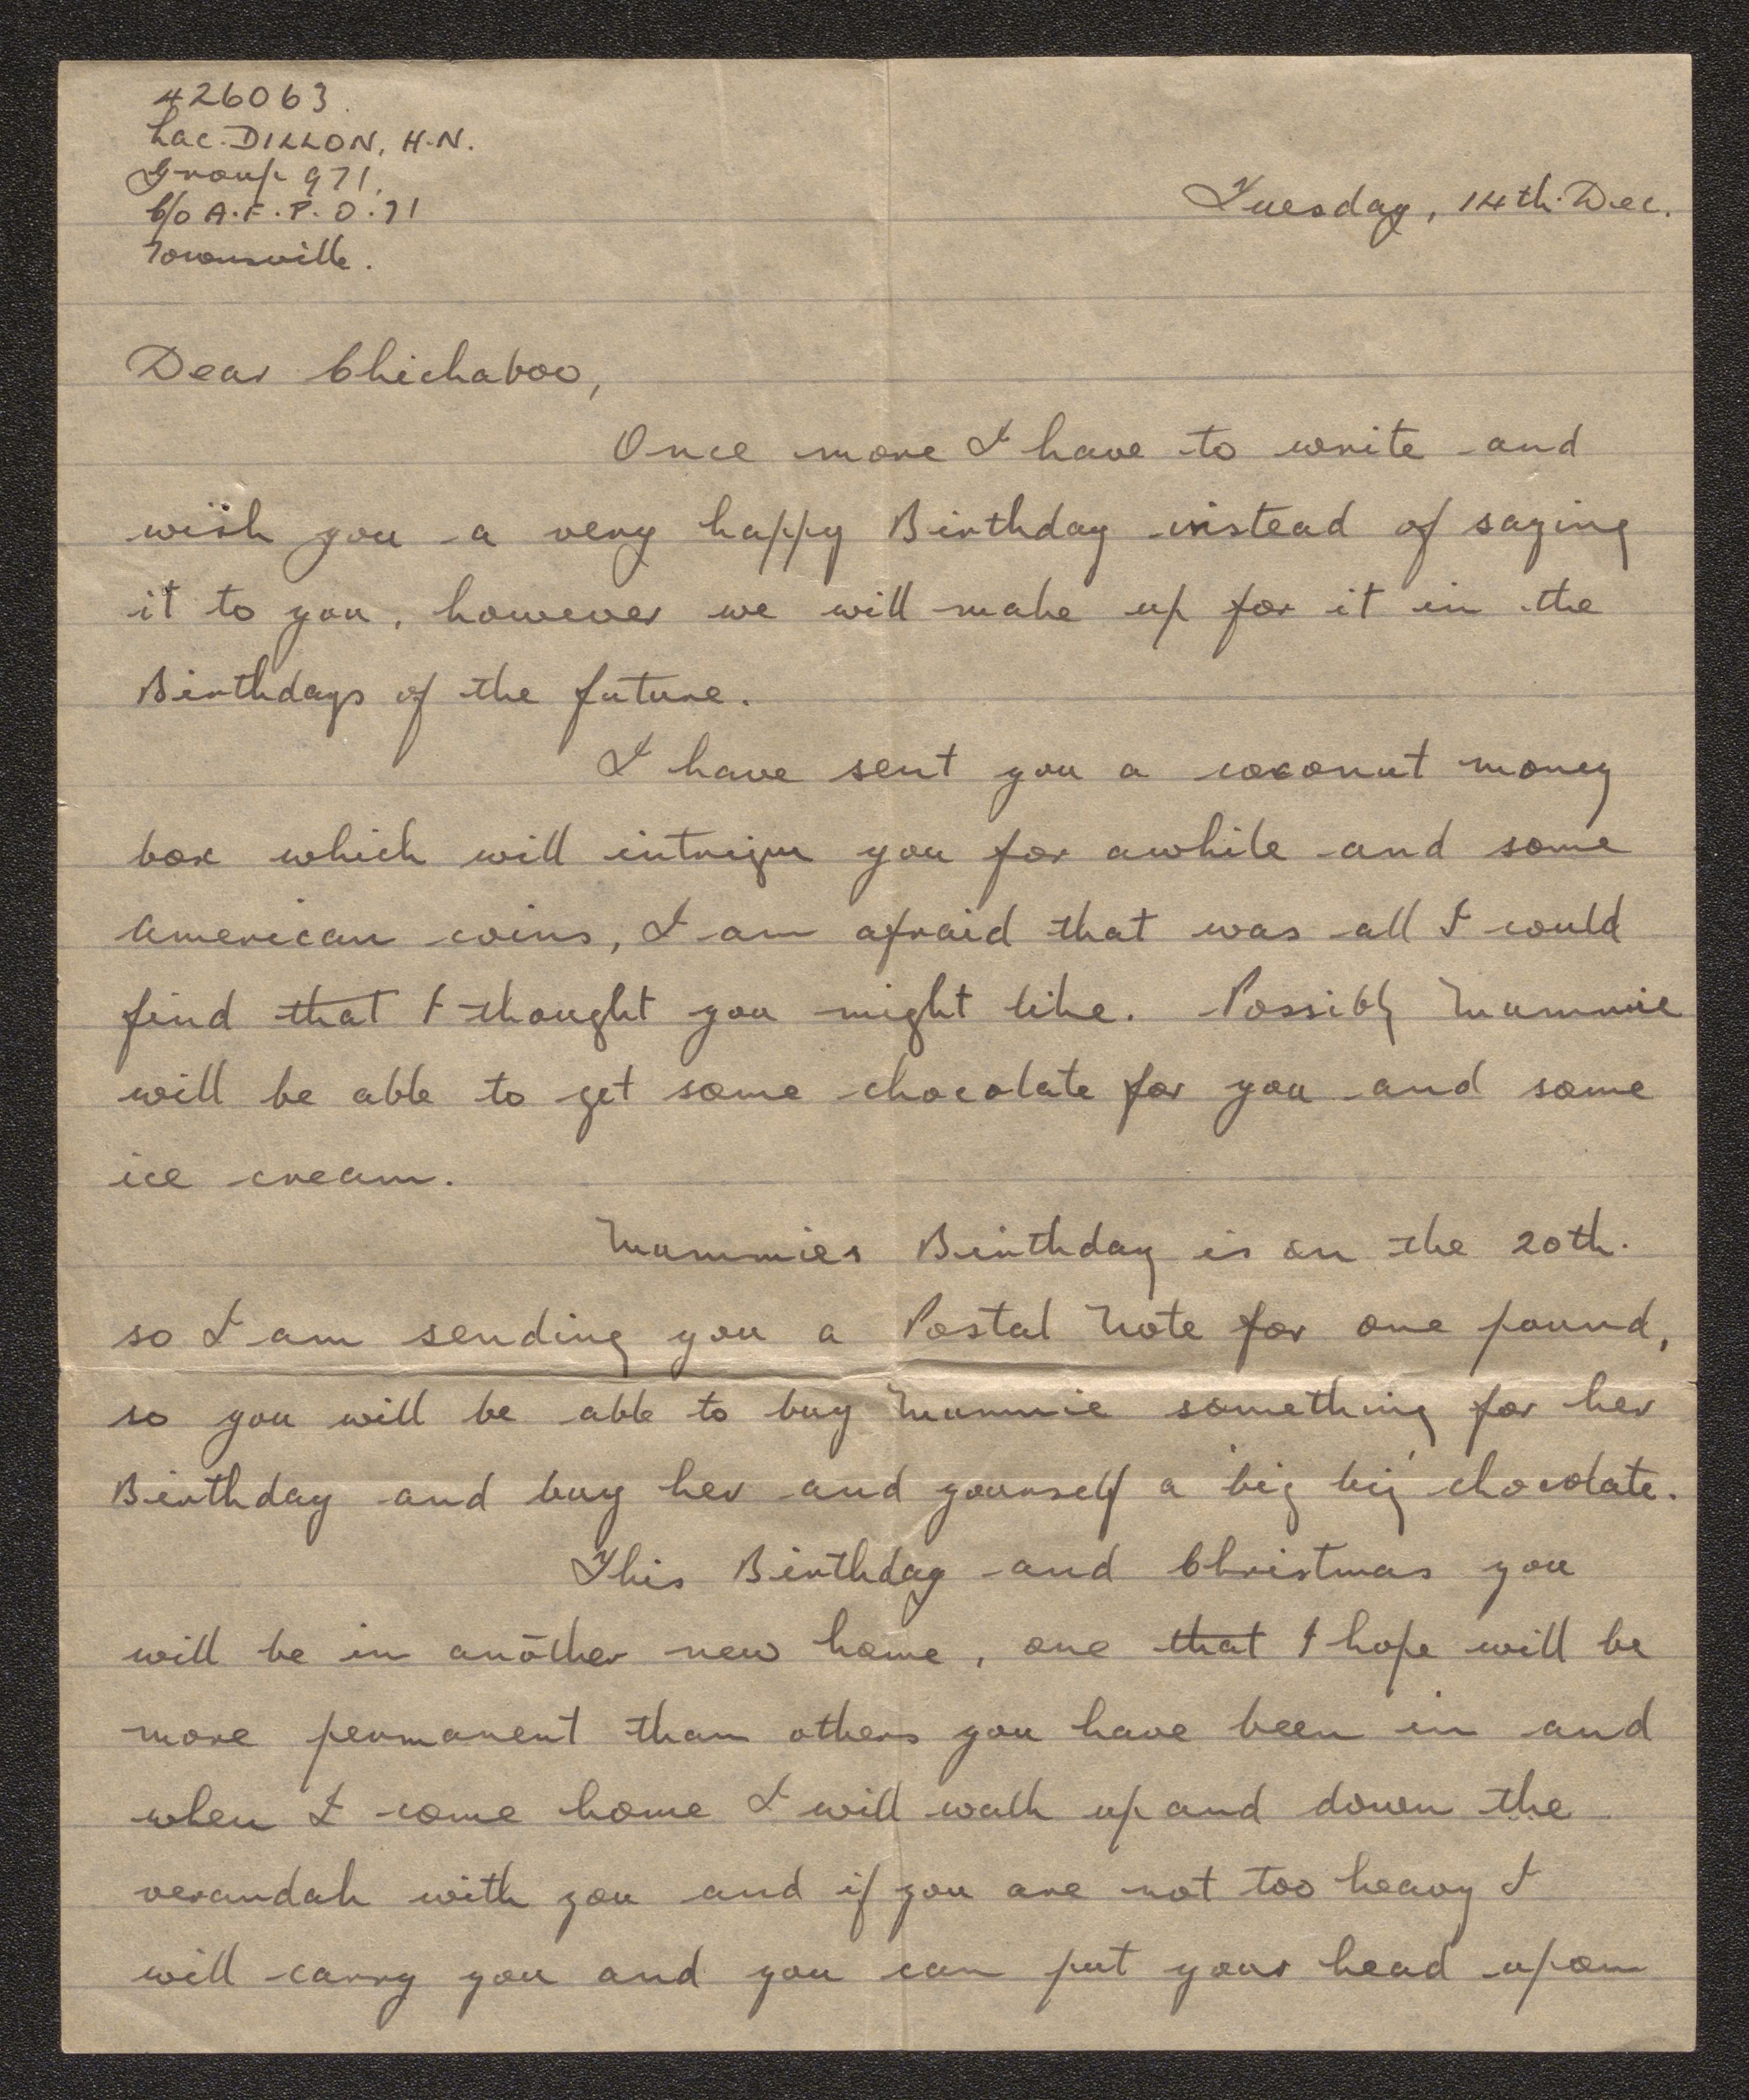 426063.
Lac. DILLON, H.N.
Group 971,
C/o A.F.P.O. 71
Townsville.
Tuesday, 14th. Dec.
Dear Chickaboo,
Once more I have to write and
wish you a very happy Birthday instead of saying
it to you, however we will make up for it in the
Birthdays of the future.
I have sent you a coconut money
box which will intrigue you for awhile and some
American coins, I am afraid that was all I could
find that I thought you might like. Possibly Mummie
will be able to get some chocolate for you and some
ice cream.
Mummies Birthday is on the 20th.
so I am sending you a Postal Note for one pound,
so you will be able to buy Mummie something for her
Birthday and buy her and yourself a big big chocolate.
This Birthday and Christmas you
will be in another new home, one that I hope will be
more permanent than others you have been in and
when I come home I will walk up and down the
verandah with you and if you are not too heavy I
will carry you and you can put your head upon